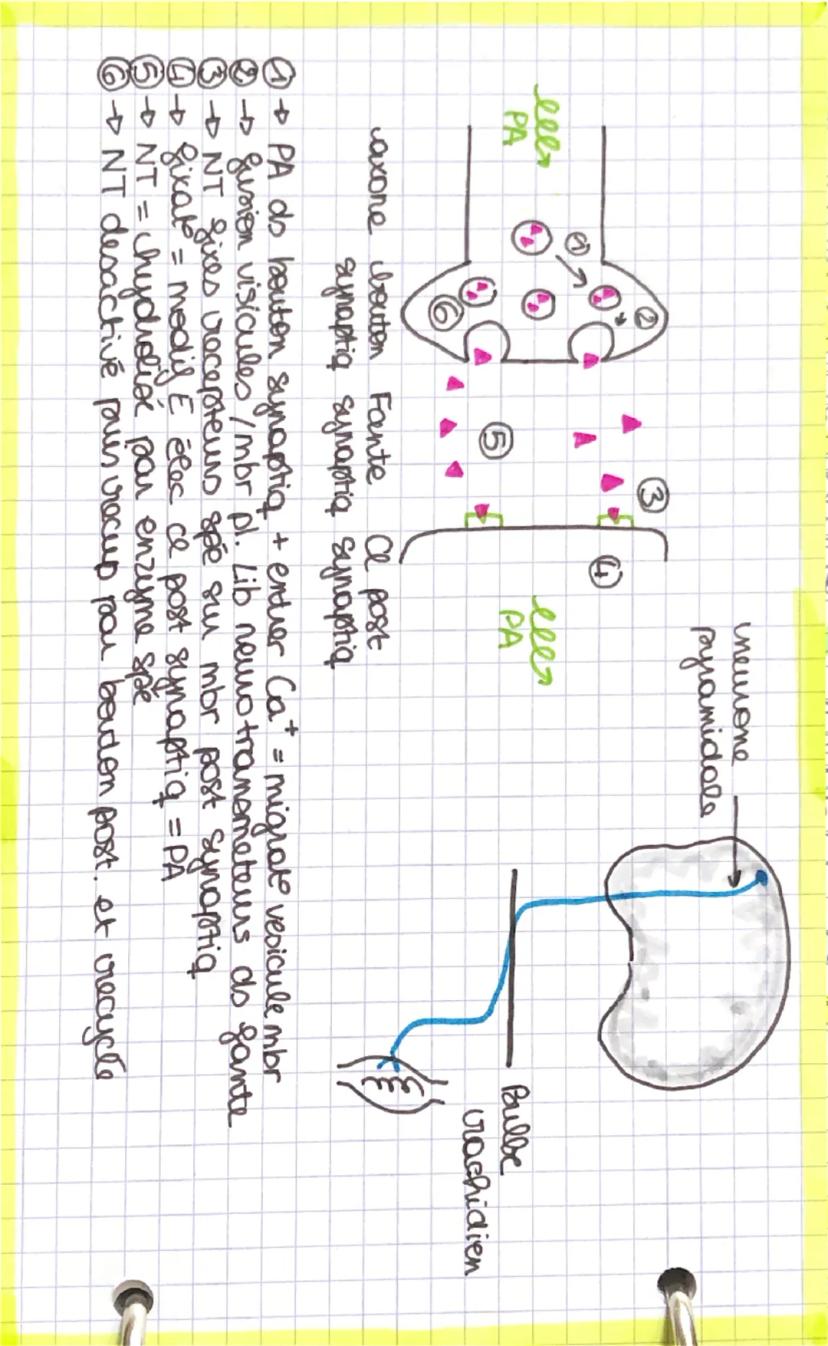 neurone
pyramidale
Bulbe
rachidien
PA
PA
① ② ③ ④ ⑤ ⑥
axone bouton Fente Cl post
synaptiq synaptiq synaptiq
① → PA ds bouton synaptiq + entrer Ca⁺ = migrat° vesicule mbr
② → fusion visicules / mbr pl. Lib neurotransmeteurs ds fente
③ → NT fixes recepteurs spé sur mbr post synaptiq
④ → fixat° = modif E élec cl post synaptiq = PA
⑤ → NT = hydrolisé par enzyme spé
⑥ → NT desactivé puis recup par bouton post. et recyclé